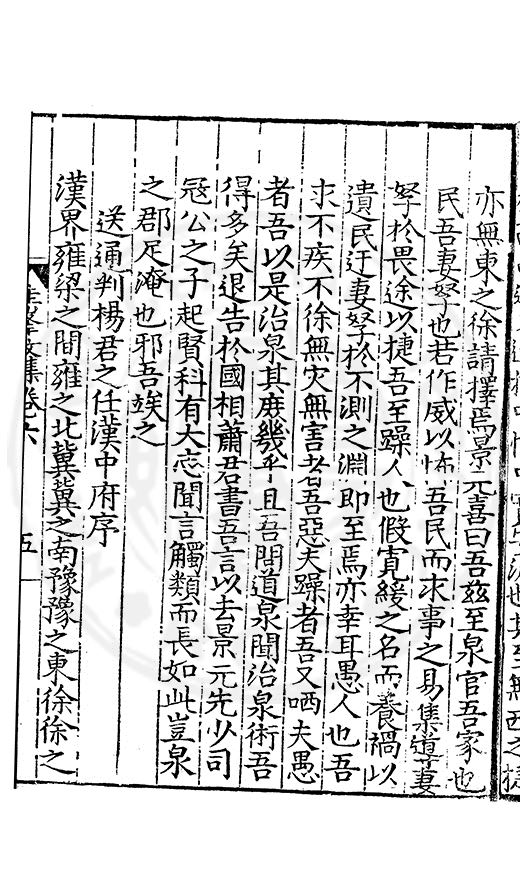 亦無東之徐請擇焉景元喜曰吾茲至泉官吾家也
民吾妻孥也若作威以怖吾民而求事之易集導妻
孥於畏途以捷吾至躁人也假寬緩之名而養禍以
遺民迂妻孥於不測之淵即至焉亦幸耳愚人也吾
求不疾不徐無灾無害者吾惡夫躁者吾又哂夫愚
者吾以是治泉其庶幾乎且吾問道泉聞治泉術吾
得多矣退告於國相蕭君書吾言以去景元先少司
冦公之子起賢科有大志聞言觸類而長如此豈泉
之郡足淹也邪吾竢之
送通判楊君之任漢中府序
漢界雍梁之間雍之北冀冀之南豫豫之東徐徐之
集卷六
五